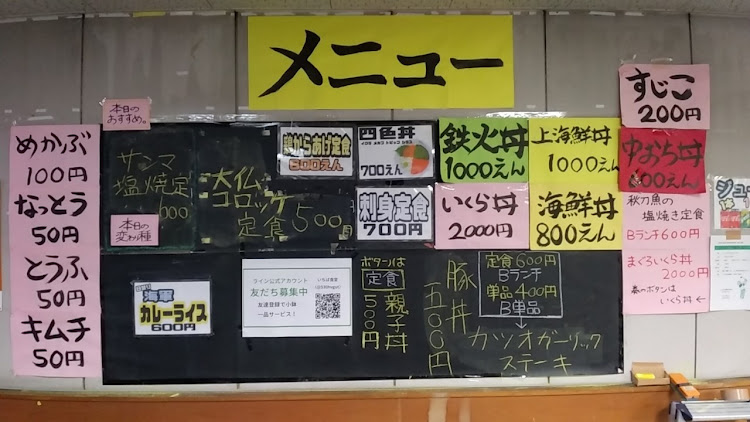 メニュー
本日の
おすすめ。
めかぶ
100円
なっとう
50円
とうふ
50円
キムチ
50円
サンマ
塩焼定
本日の
変わり種
大仏
コロッケ
定食500円
鶏からあげ定食
600えん
四色丼
700えん
刺身定食
700円
鉄火丼
1000えん
上海鮮丼
1000えん
いくら丼
2000円
海鮮丼
800えん
すじこ
200円
中おち丼
600えん
秋刀魚の
塩焼き定食
Bランチ600円
まぐろいくら丼
2000円
いくら丼←
海軍
カレーライス
600円
ライン公式アカウント
友だち募集中
友達登録で小鉢
一品サービス!
いちば食堂
ボタンは
定食
親子丼
500円
豚丼
五〇〇円
定食600円
Bランチ
単品400円
B単品
カツオガーリック
ステーキ